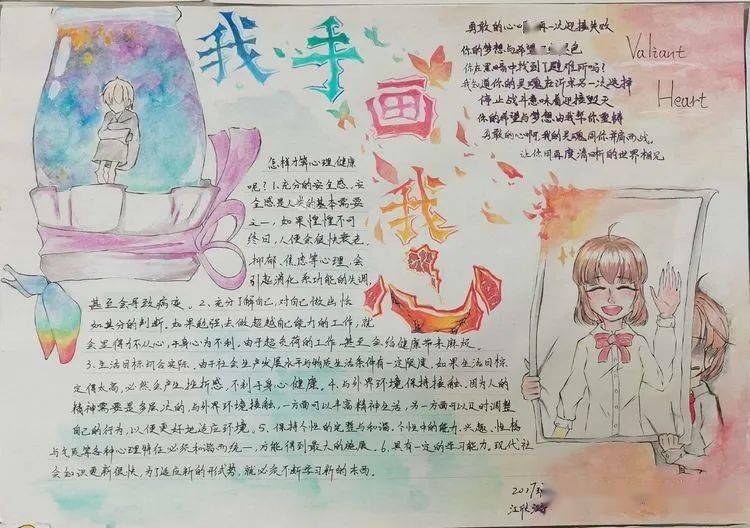 我手画我心
勇敢的心 再一次迎接失败
你的梦想与希望 色
你在黑暗中找到了避难所吗?
我知道你的灵魂在沂求另一次选择
停止战斗意味着迎接毁灭
你的希望与梦想由我举你重铸
勇敢的心 我的灵魂同你并肩而战、
让你用再度清晰的世界相见
Valiant
Heart
怎样才算心理健康
呢?1.充分的安全感、安
全感是人类的基本需要
之一,如果惶惶不可
终日,人便会很快衰老。
抑郁、焦虑等心理,会
引起消化系功能的失调,
甚至会导致病变。2、充分了解自己,对自己做出恰
如其分的判断。如果勉强去做超越自己能力的工作,就
会显得力不从心,于身心为不利,由于超负荷的工作,甚至会给健康带来麻烦。
3.生活目标切合实际、由于社会生产发展水平与物质生活条件有一定限度,如果生活目标
定得太高,必然会产生挫折感,不利于身心健康。4、与外界环境保持接触,因为人的
精神需要是多层次的,与外界环境接触,一方面可以丰富精神生活,另一方面可以及时调整
自己的行为,以便更好地适应环境。5、保持个性的完整与和谐。个性中的能力、兴趣、性格
与气质等各种心理特征必须和谐而统一,方能得到最大的施展。6、具有一定的学习能力。现代社
会知识更新很快,为了适应新的形式势,就必须不断学习新的东西。
2017
江欣